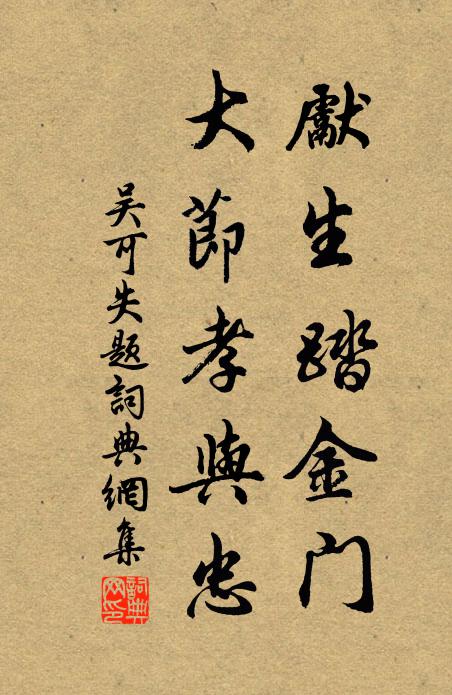 獻生踏金门
大節孝與忠
吴可失题詞典網集
詞典网印